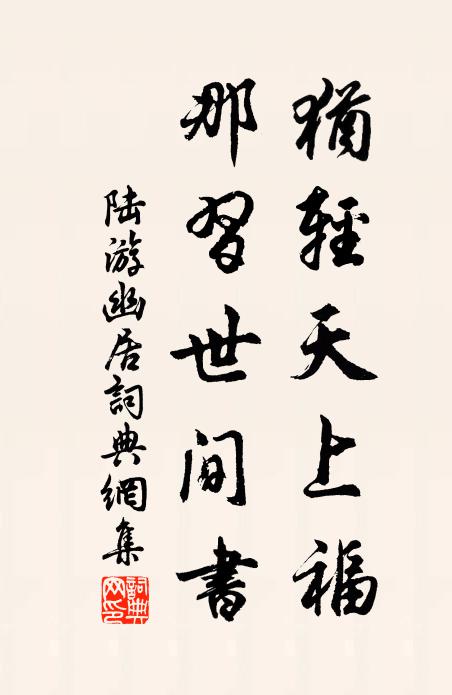 猶輕天上福
那習世間書
陸游幽居詞典網集
詞典網印